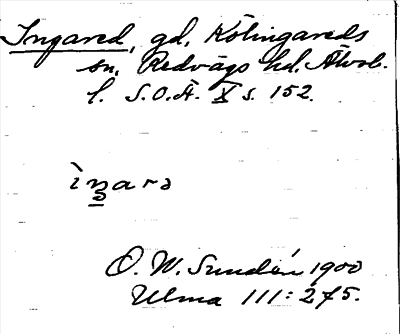 Ingared, gd, Kölingareds
sn, Redvägs hd. Älvsb.
l. S.O.Ä. X s. 152.
ìnarə
O. W. Sundén 1900
Ulma 111:275.